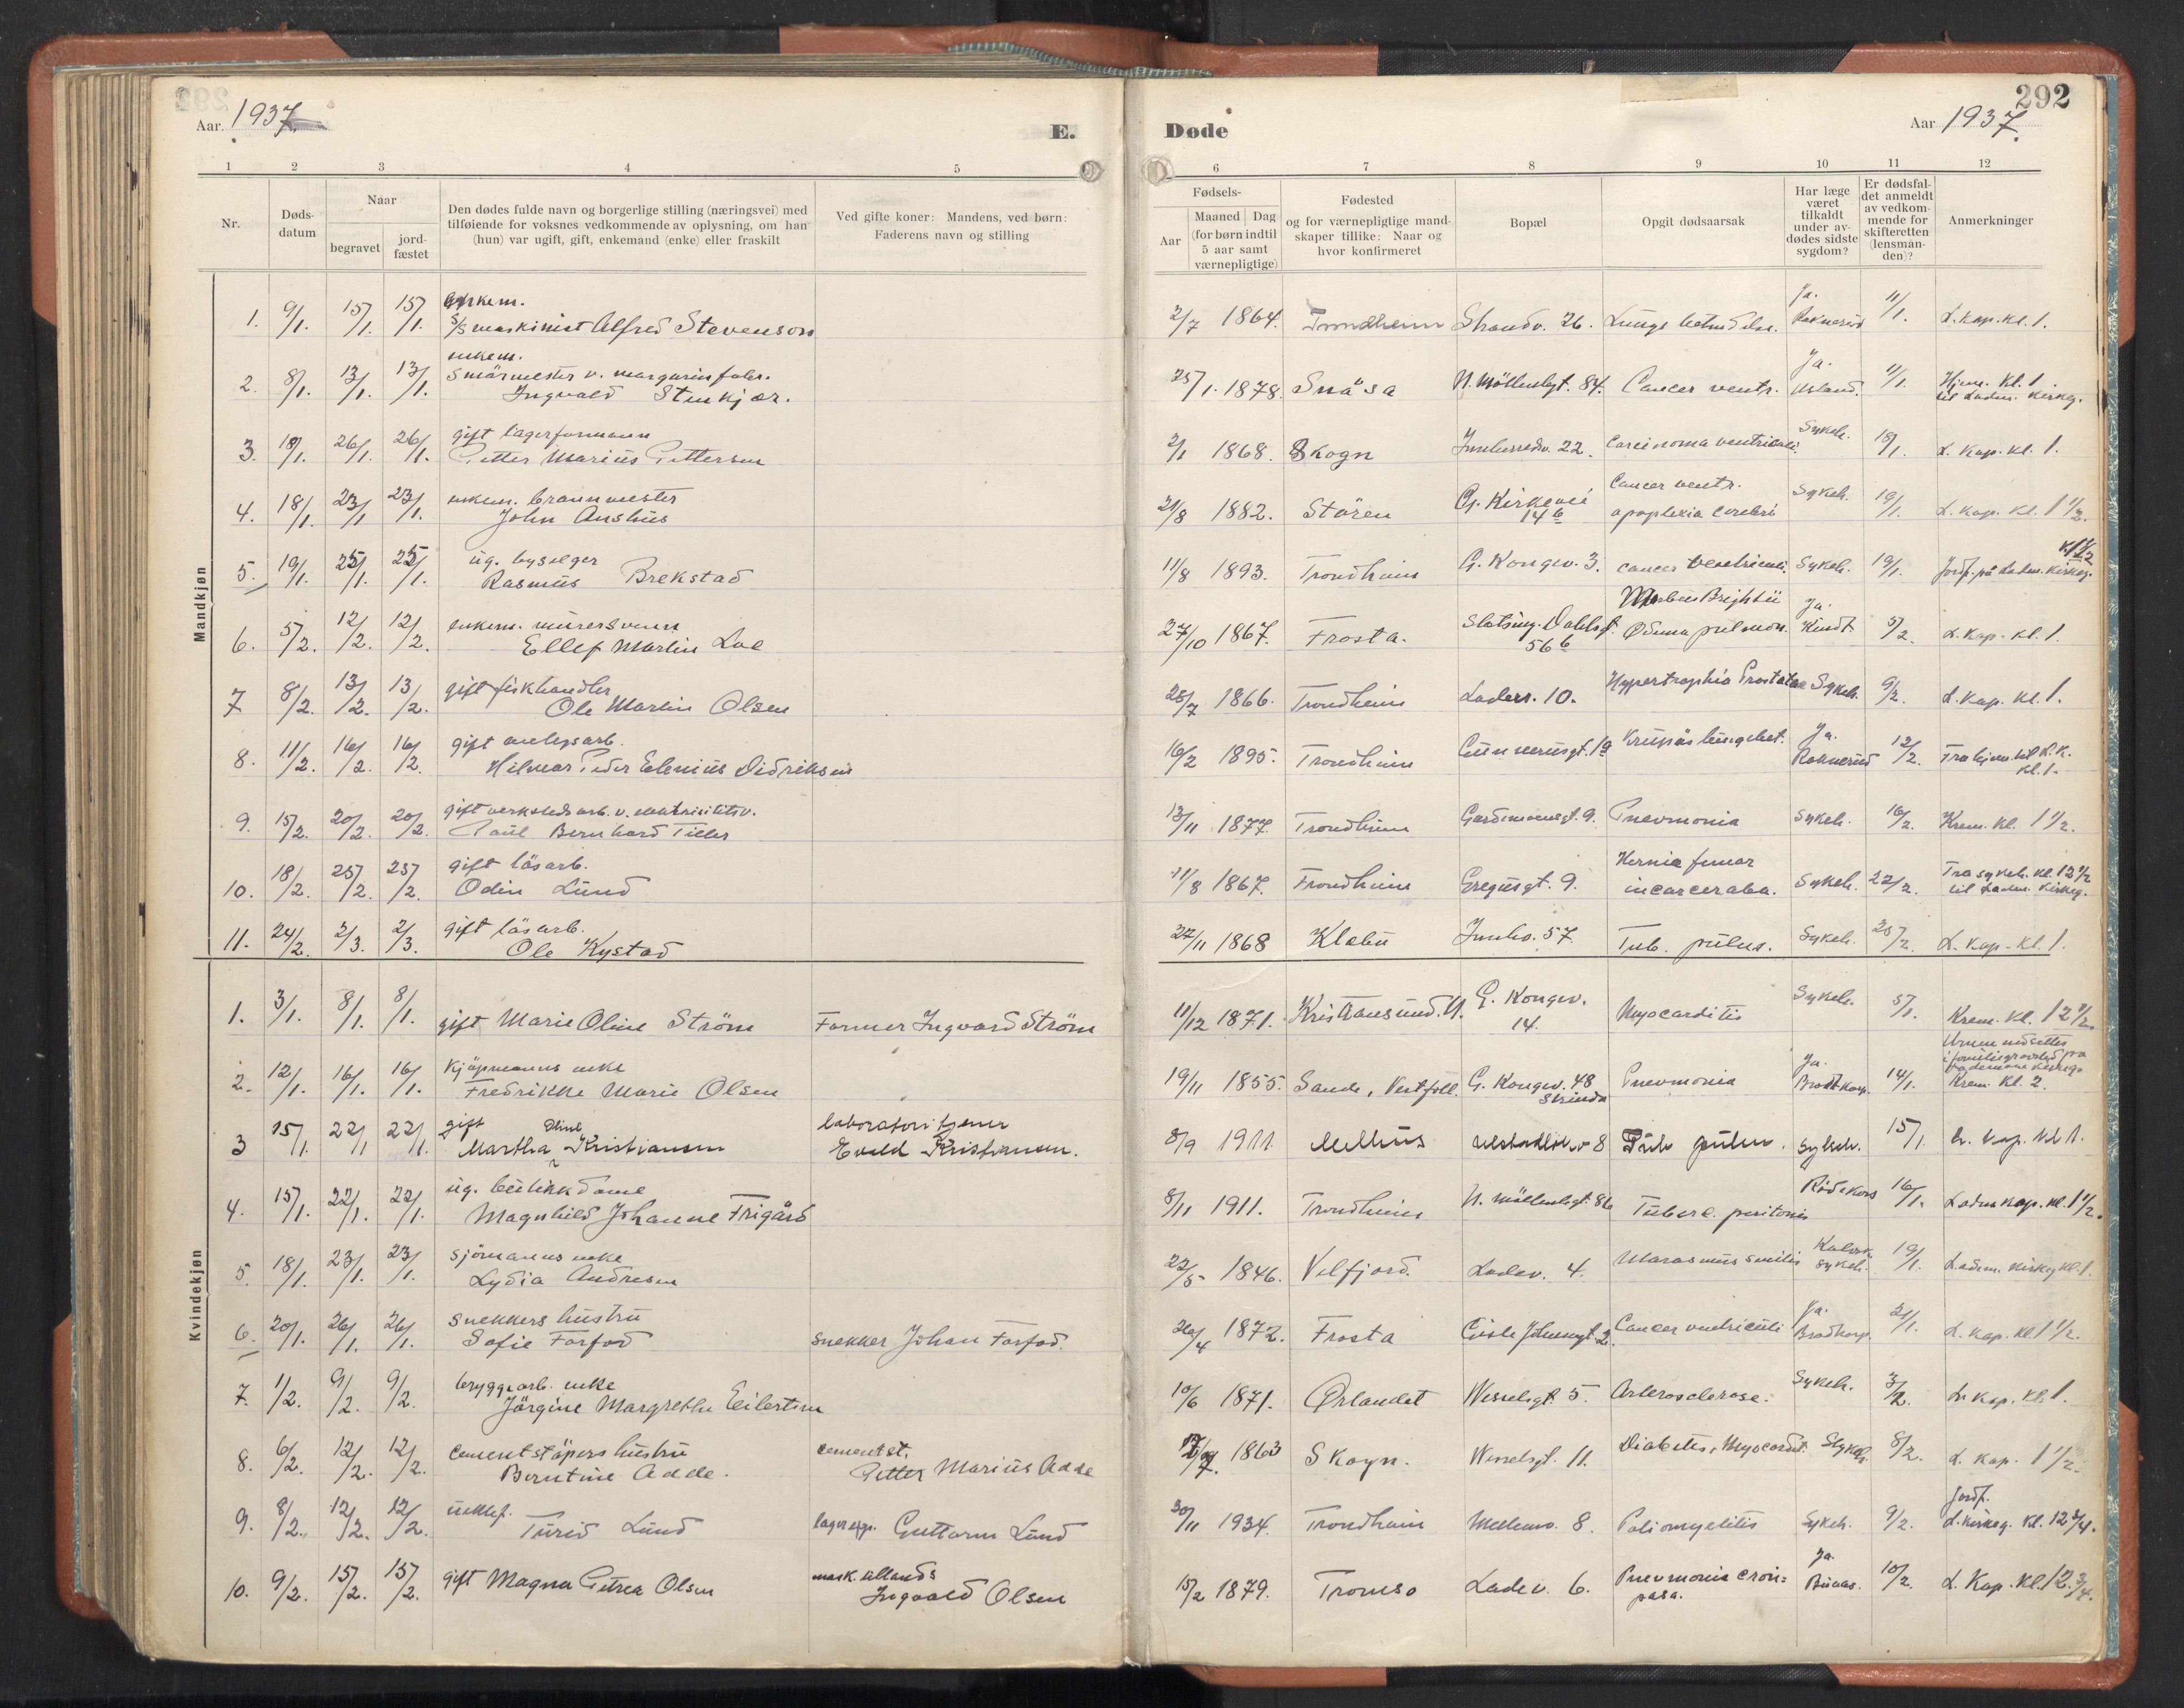 Aar. 1937.
E.
Døde
292
Aar 1937.
1 2 3 4 5 6 7 8 9 10 11 12
Nr.
Døds-
datum
Naar
begravet
jord-
fæstet
Den dødes fulde navn og borgerlige stilling (næringsvei) med
tilføiende for voksnes vedkommende av oplysning, om han
(hun) var ugift, gift, enkemand (enke) eller fraskilt
Ved gifte koner: Mandens, ved børn:
Faderens navn og stilling
Fødsels-
Aar
Maaned Dag
(for børn indtil
5 aar samt
værnepligtige)
Fødested
og for værnepligtige mand-
skaper tillike: Naar og
hvor konfirmeret
Bopæl
Opgit dødsaarsak
Har læge
været
tilkaldt
under av-
dødes sidste
sygdom?
Er dødsfal-
det anmeldt
av vedkom-
mende for
skifteretten
(lensman-
den)?
Anmerkninger
Mandkjøn
enkem. Ja.
1. 9/1. 15/1. 15/1. S/S maskinist Alfred Stevenson 2/7 1864. Trondheim Strandv. 26. Lunge betendelse. Raknerud 11/1. L. kap. kl. 1.
enkem.
smörmester v. margarinfabr. Ja.
2. 8/1. 13/1. 13/1. Ingvald Stenkjær. 25/1. 1878. Snåsa N. Möllenbgt. 84. Cancer ventr. Usland. 11/1. Hjem. kl. 1
til Ladem. kirkeg.
gift lagerformann
3. 18/1. 26/1. 26/1. Petter Marius Pettersen 2/1 1868. Skogn Innherredsv. 22. Carcinoma ventriculi. Sykeh. 18/1. L. kap. kl. 1.
enkem. brannmester Cancer ventr.
4. 18/1. 23/1 23/1. John Aushus 21/8 1882. Stören G. Kirkevei 14b apoplexia cerebri Sykeh. 19/1. L. kap. kl. 1 1/2.
ug. byselger
5. 19/1. 25/1. 25/1. Rasmus Brekstad 11/8 1893. Trondheim G. Kongev. 3. cancer ventriculi. Sykeh. 19/1. Jordf. på Ladem. kirkeg. kl 1 1/2
enkem. murersvenn Morbus Brightii Ja.
6. 5/2. 12/2. 12/2. Ellef Martin Loe 27/10 1867. Frosta. Statsing. Dahlsgt. 56b Ödema pulmon. Kindt 5/2. L. kap. kl. 1.
gift fiskhandler
7 8/2. 13/2. 13/2. Ole Martin Olsen 28/7 1866. Trondheim Laders. 10. Hypertrophia Prostatae Sykeh. 9/2. L. kap. kl. 1.
gift anlegsarb. Ja.
8. 11/2. 16/2. 16/2. Hilmar Peder Elenius Didriksen 16/2 1895. Trondheim Gunnerusgt. 1a Krupøs lungebet. Raknerud 12/2. Fra hjem. til L. K.
kl. 1.
gift verkstedsarb. v. elektrisitetsv.
9. 15/2. 20/2. 20/2. Paul Bernhard Tiller 13/11 1877. Trondheim Gardemoensgt. 9. Pneumonia Sykeh. 16/2. Krem. kl. 1 1/2.
gift lösarb. Hernia femor
10. 18/2. 25/2. 25/2. Odin Lund 11/8 1867. Trondheim Gregusgt. 9. incarcerata. Sykeh. 22/2. Fra sykeh. kl. 12 1/2
til Ladem. kirkeg.
gift lösarb.
11. 24/2. 2/3. 2/3. Ole Kystad 27/11 1868 Klæbu Innhv. 57 Tub. pulm. Sykeh. 25/2. L. kap. kl. 1.
Kvindekjøn
1. 3/1. 8/1. 8/1. gift Marie Oline Ström Former Ingvard Ström 11/12 1871. Kristiansund. N. G. Kongev. 14. Myocarditis Sykeh. 5/1. Krem. kl. 12 1/2.
Urnen nedsettes
i familiegravsted på
Lademoens kirkeg.
Kjöpmanns enke Ja.
2. 12/1. 16/1. 16/1. Fredrikke Marie Olsen 19/11 1855. Sande, Vestfoll. G. Kongev. 48 Strinda Pneumonia Brodtkorp. 14/1. Krem. kl. 2.
gift Eline laboratoritjener
3 15/1. 22/1 22/1. Martha Kristiansen Evald Kristiansen. 8/9 1911. Melhus 8 Tub. pulm. Sykeh. 15/1. L. kap. kl 1.
ug. butikkdame
4. 15/1. 22/1. 22/1. Magnhild Johanne Frigård 8/11 1911. Trondheim N. Möllenbgt. 86 Tuberc. peritonis Rödekors 16/1. Ladem kap. kl. 1 1/2.
Sjömanns enke
5. 18/1. 23/1. 23/1. Lydia Andresen 22/5 1846. Velfjord. Ladev. 4. Marasmus senilis Kalvsk. sykeh. 19/1. Ladem. kirkeg kl. 1.
Snekkers hustru Ja.
6. 20/1. 26/1. 26/1. Sofie Forfod snekker Johan Forfod. 26/4 1872. Frosta Gisle Johnsongt. 2. Cancer ventriculi Brodtkorp. 21/1. L. kap. kl. 1 1/2.
bryggearb. enke
7. 1/2. 9/2. 9/2. Jörgine Margrethe Eilertsen 10/6 1871. Ørlandet Wesselsgt. 5. Arterosclerose. Sykeh. 3/2. L. kap. kl. 1.
Cementstöpers hustru cementst.
8. 6/2. 12/2. 12/2. Berntine Adde. Petter Marius Adde 1863 Skogn. Wesselsgt. 11. Diabetes, Myocardit. Sykeh. 8/2. L. kap. 1 1/2.
uektef. Jordf.
9. 8/2. 12/2. 12/2. Turid Lund lagereksp. Guttorm Lund 30/11 1934. Trondheim Mellemv. 8. Poliomyelitis Sykeh. 9/2. L. kirkeg. kl. 12 3/4.
mask. Ja.
10. 9/2. 15/2. 15/2. gift Magna Petrea Olsen Ingvald Olsen 15/2 1879. Tromsø Ladev. 6. Pneumonia crou=
posa. Buaas. 10/2. L. Kap. kl. 12 3/4.